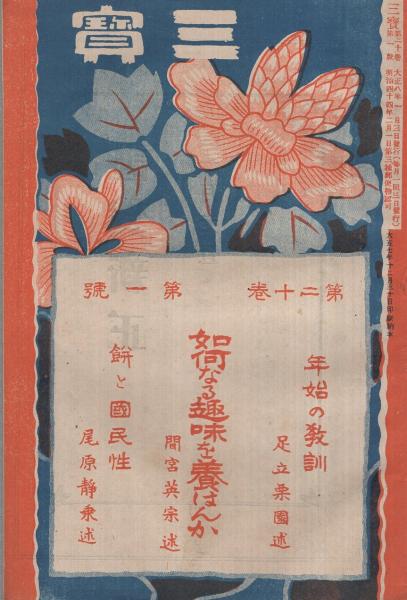 三寶
三寶第二十卷第一號
大正八年一月三日發行(每月一回三日發行)
明治四十四年二月一日第三種郵便物認可
第二十卷 第一號
年始の教訓
足立栗園述
如何なる趣味を養はんか
間宮英宗述
餅と國民性
尾原靜乘述